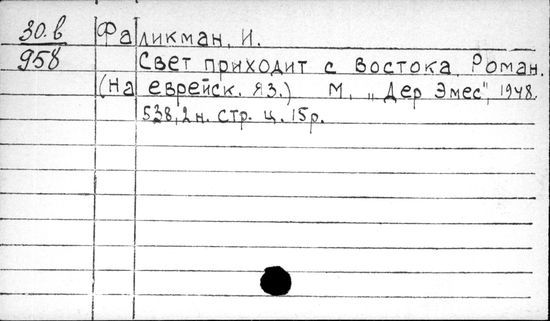 30.в Фаликман, И.
958 Свет приходит с Востока. Роман.
(на еврейск. яз.) М., „Дер Эмес", 1948.
538,2н. стр. ц. 15р.